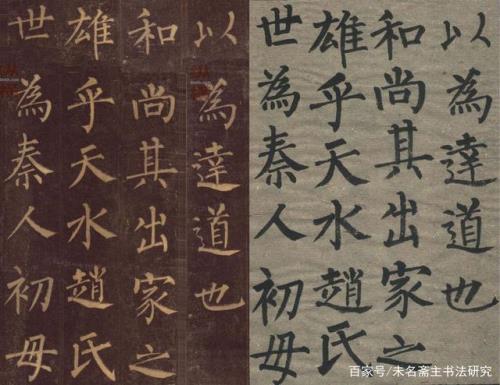 以為達道也
和尚其出家之
雄乎天水趙氏
世為秦人初母
以為達道也
和尚其出家之
雄乎天水趙氏
世為秦人初母
百家号/未名斋主书法研究